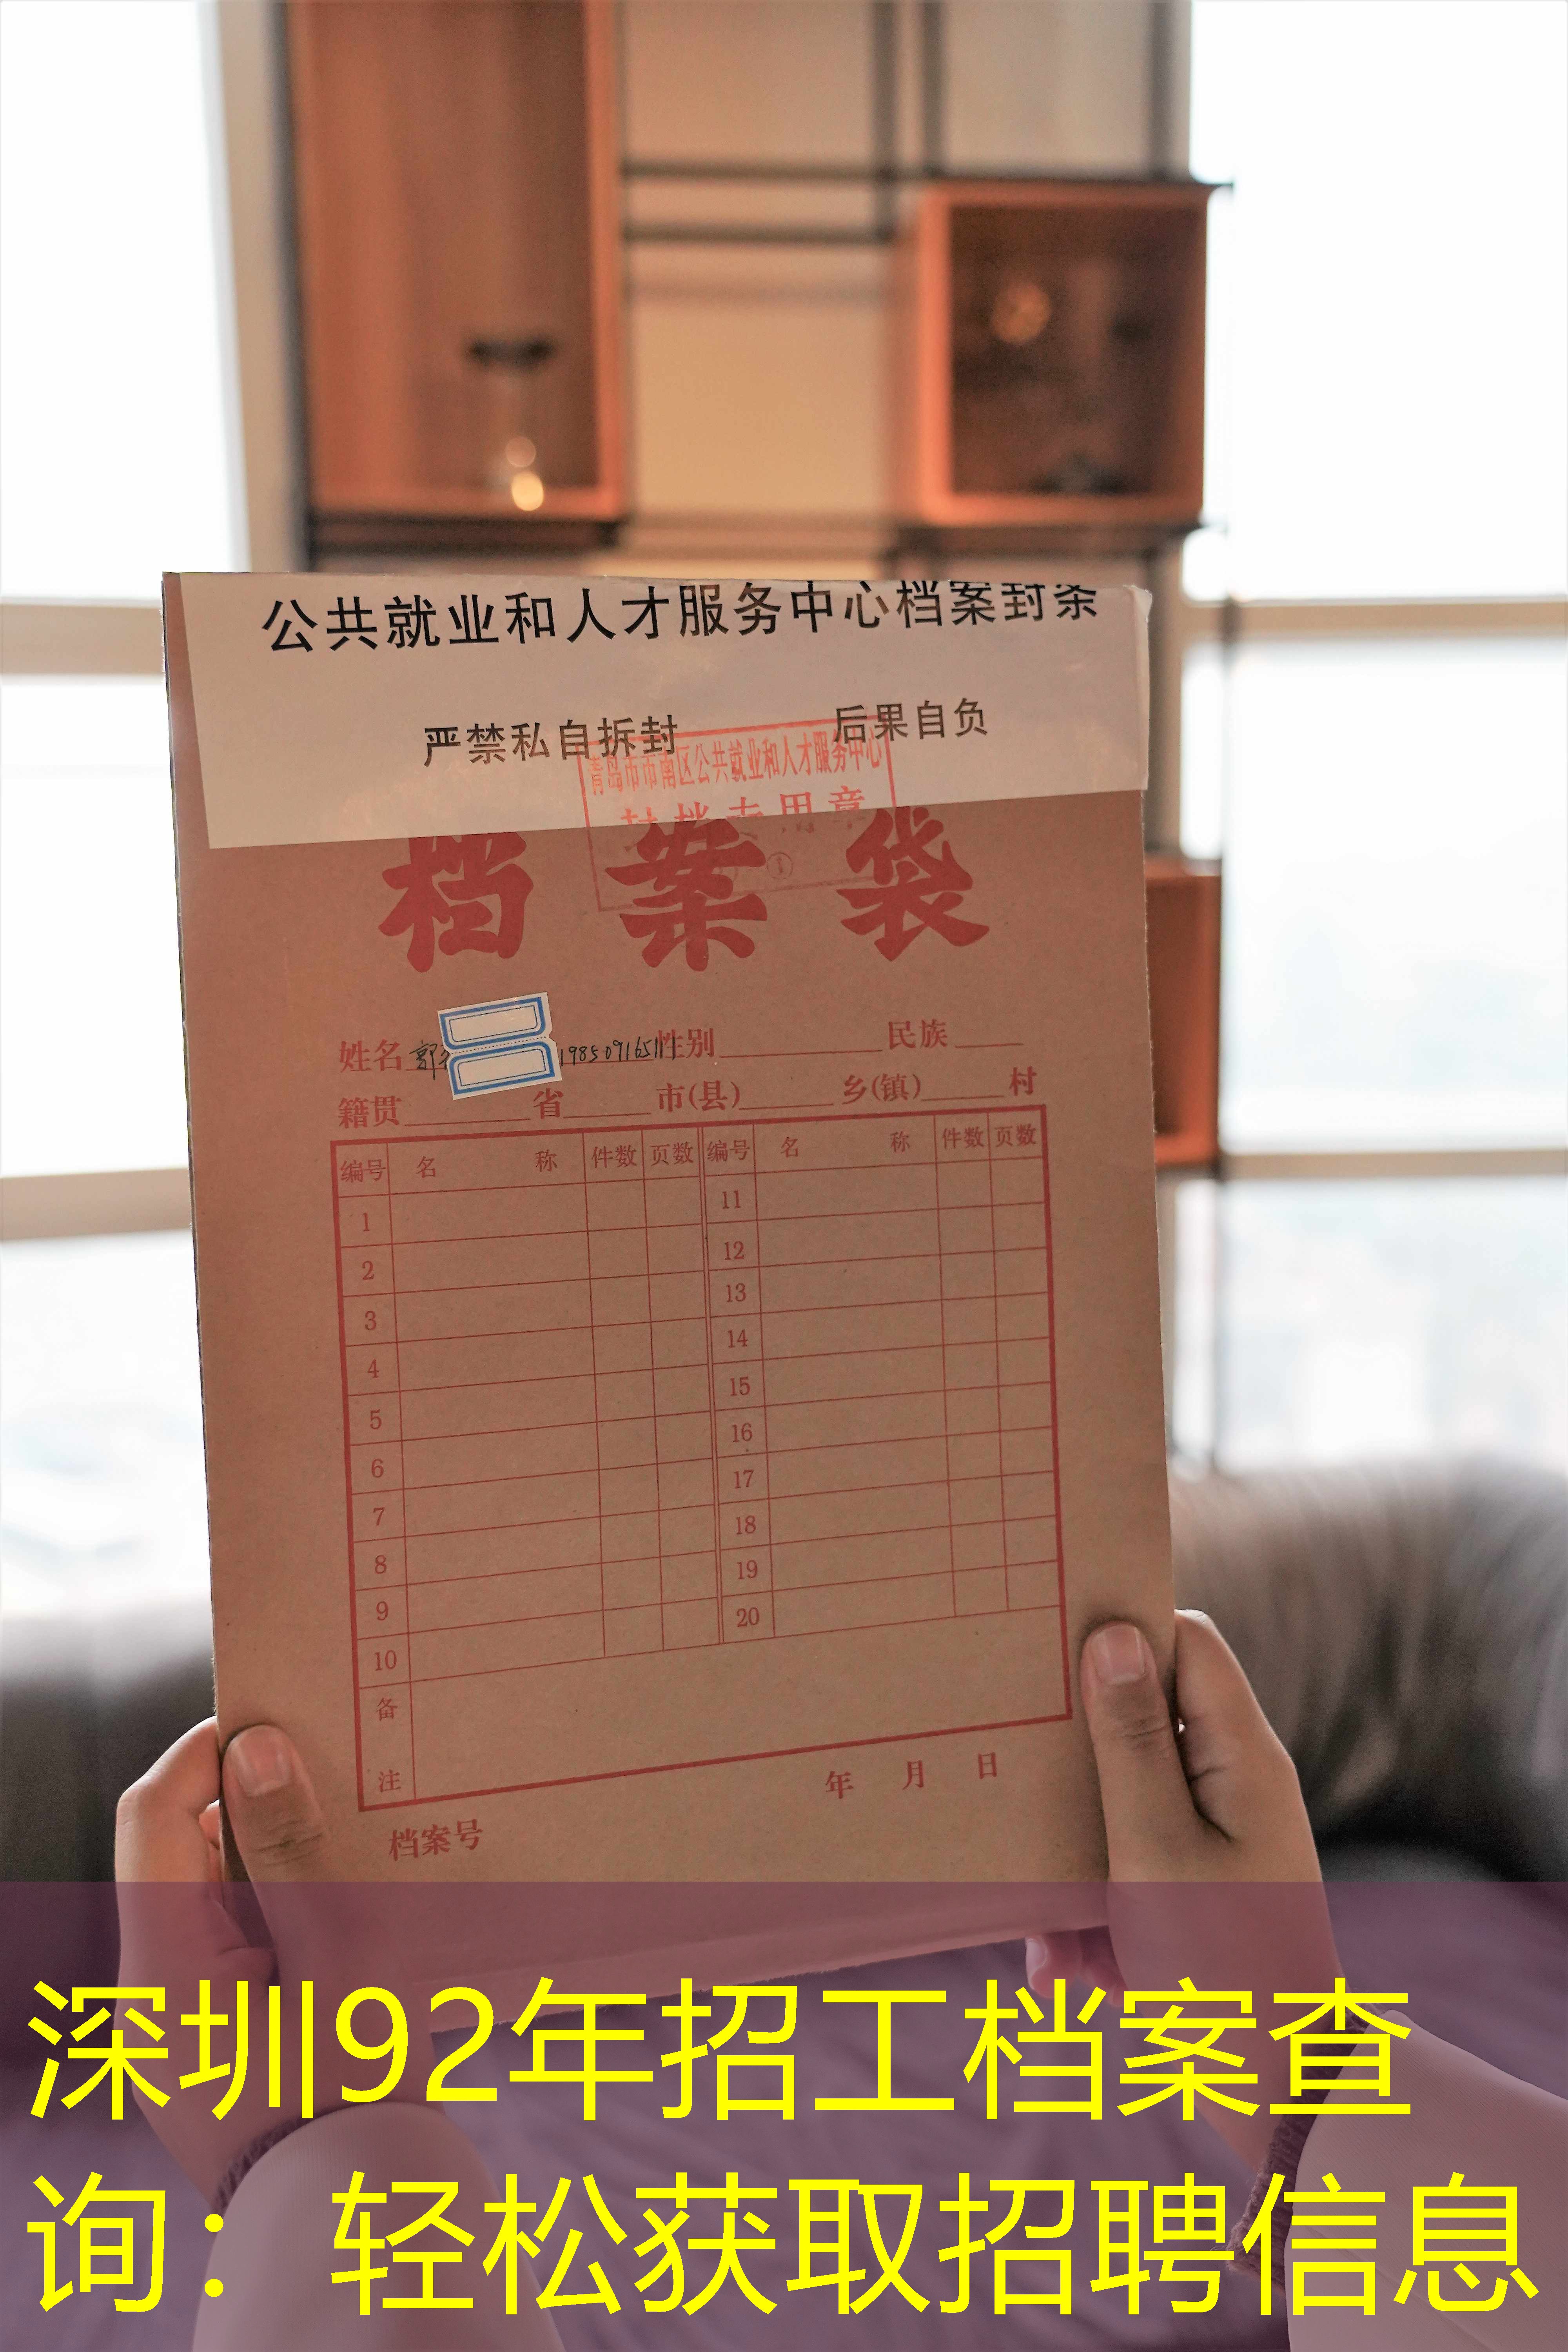 公共就业和人才服务中心档案封条
严禁私自拆封 后果自负
青岛市市南区公共就业和人才服务中心
封档专用章
档案袋
姓名 郭 19850916511 性别 民族
籍贯 省 市(县) 乡(镇) 村
编号 名 称 件数 页数 编号 名 称 件数 页数
1 11
2 12
3 13
4 14
5 15
6 16
7 17
8 18
9 19
10 20
备
注
年 月 日
档案号
深圳92年招工档案查
询：轻松获取招聘信息